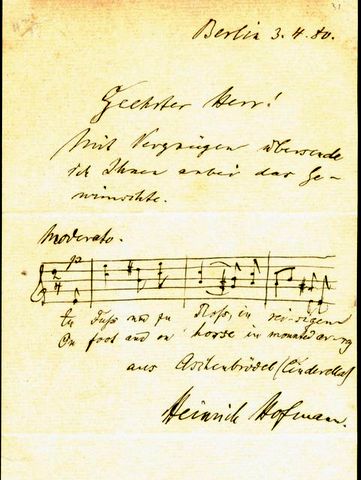 Berlin 3.4.80.
Geehrter Herr!
Mit Vergnügen übersende
ich Ihnen anbei das Ge-
wünschte.
Moderato.
p
2
4
Zu Fuss und zu Ross, in
On foot and on horse in
aus Aschenbrödel (Cinderella)
Heinrich Hofmann.